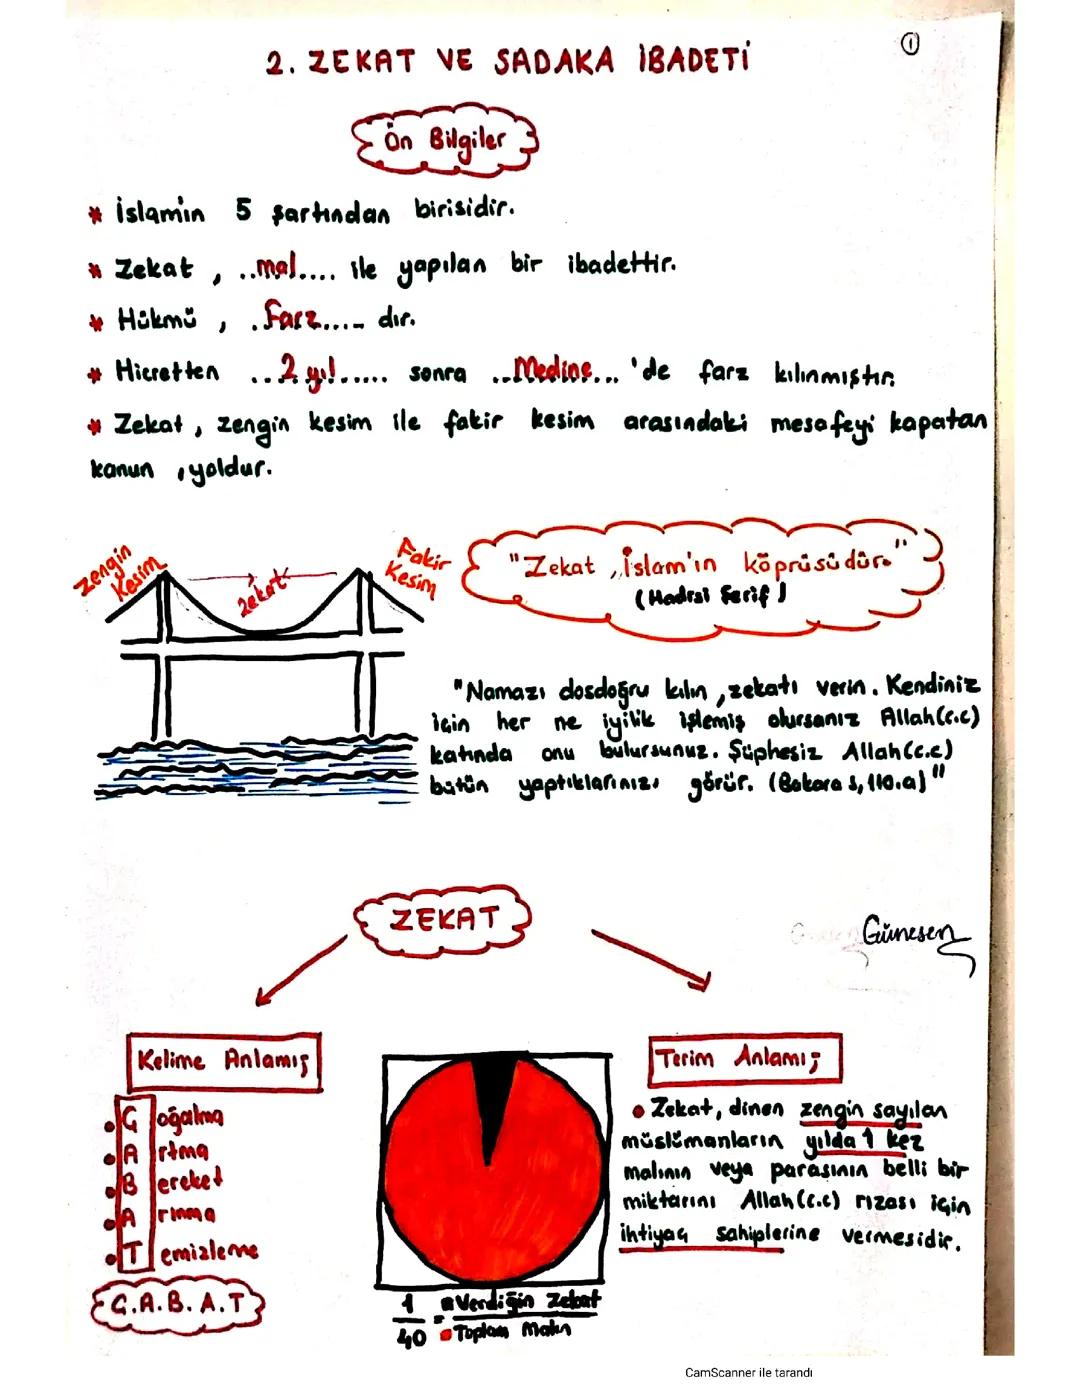 ①
2. ZEKAT VE SADAKA İBADETİ
Ön Bilgiler
* İslam'ın 5 şartından birisidir.
* Zekat, ..mal.... ile yapılan bir ibadettir.
* Hükmü, .farz..... dır.
* Hicretten ...2 yıl...... sonra ..Medine... 'de farz kılınmıştır.
* Zekat, zengin kesim ile fakir kesim arasındaki mesafeyi kapatan
kanun, yoldur.
Zengin
Kesim
zekat
Fakir
Kesim
"Zekat, İslam'ın köprüsüdür."
(Hadisi Şerif)
"Namazı dosdoğru kılın, zekatı verin. Kendiniz
için her ne iyilik işlemiş olursanız Allah(c.c)
katında onu bulursunuz. Şüphesiz Allah(c.c)
bütün yaptıklarınızı görür. (Bakara s, 110.a)"
ZEKAT
Günesen
Kelime Anlamı;
• Çoğalma
• Artma
• Bereket
• Arınma
• Temizleme
Ç.A.B.A.T
1/40 = Verdiğin Zekat
Toplam Malın
Terim Anlamı;
• Zekat, dinen zengin sayılan
müslümanların yılda 1 kez
malının veya parasının belli bir
miktarını Allah(c.c) rızası için
ihtiyaç sahiplerine vermesidir.
CamScanner ile tarandı